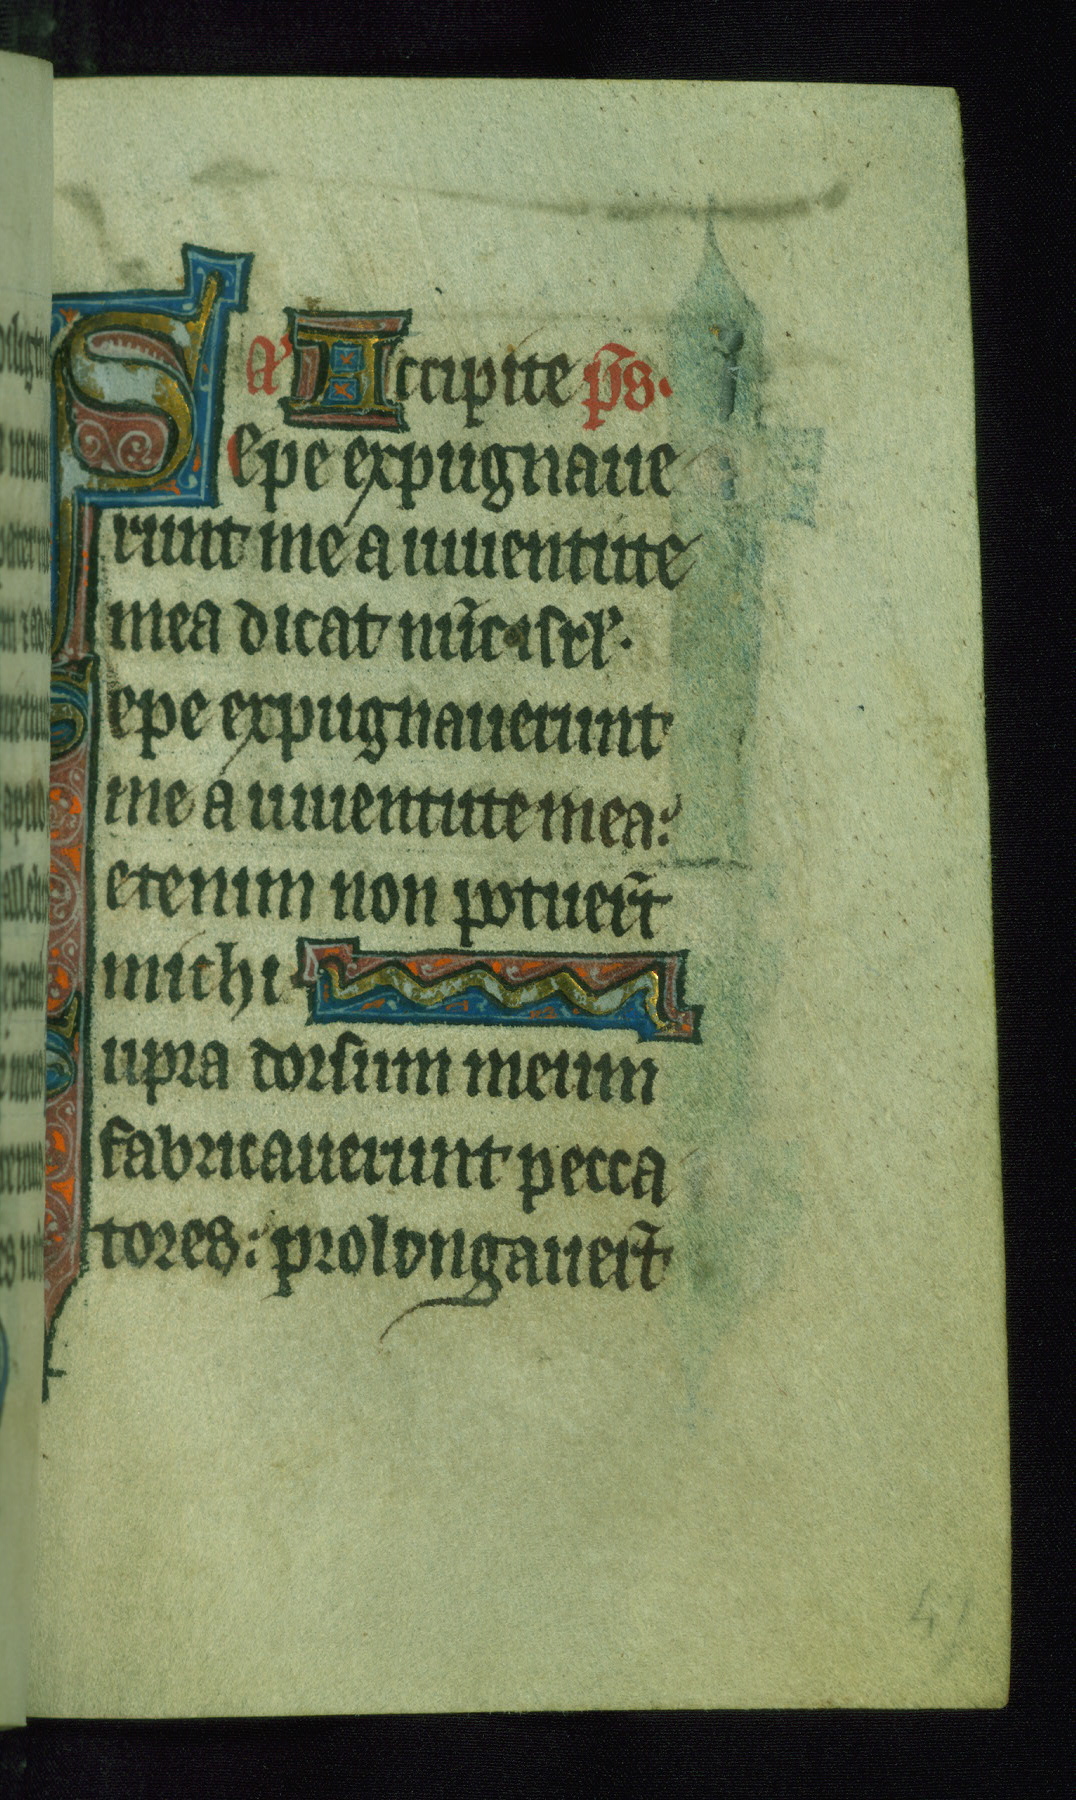 a Accipite p̄s.
Sepe expugnaue
runt me a iuuentute
mea dicat nūc isrl'.
Sepe expugnauerunt
me a iuuentute mea:
etenim non potuer̄t
michi
Supra dorsum meum
fabricauerunt pecca
tores: prolongauer̄t